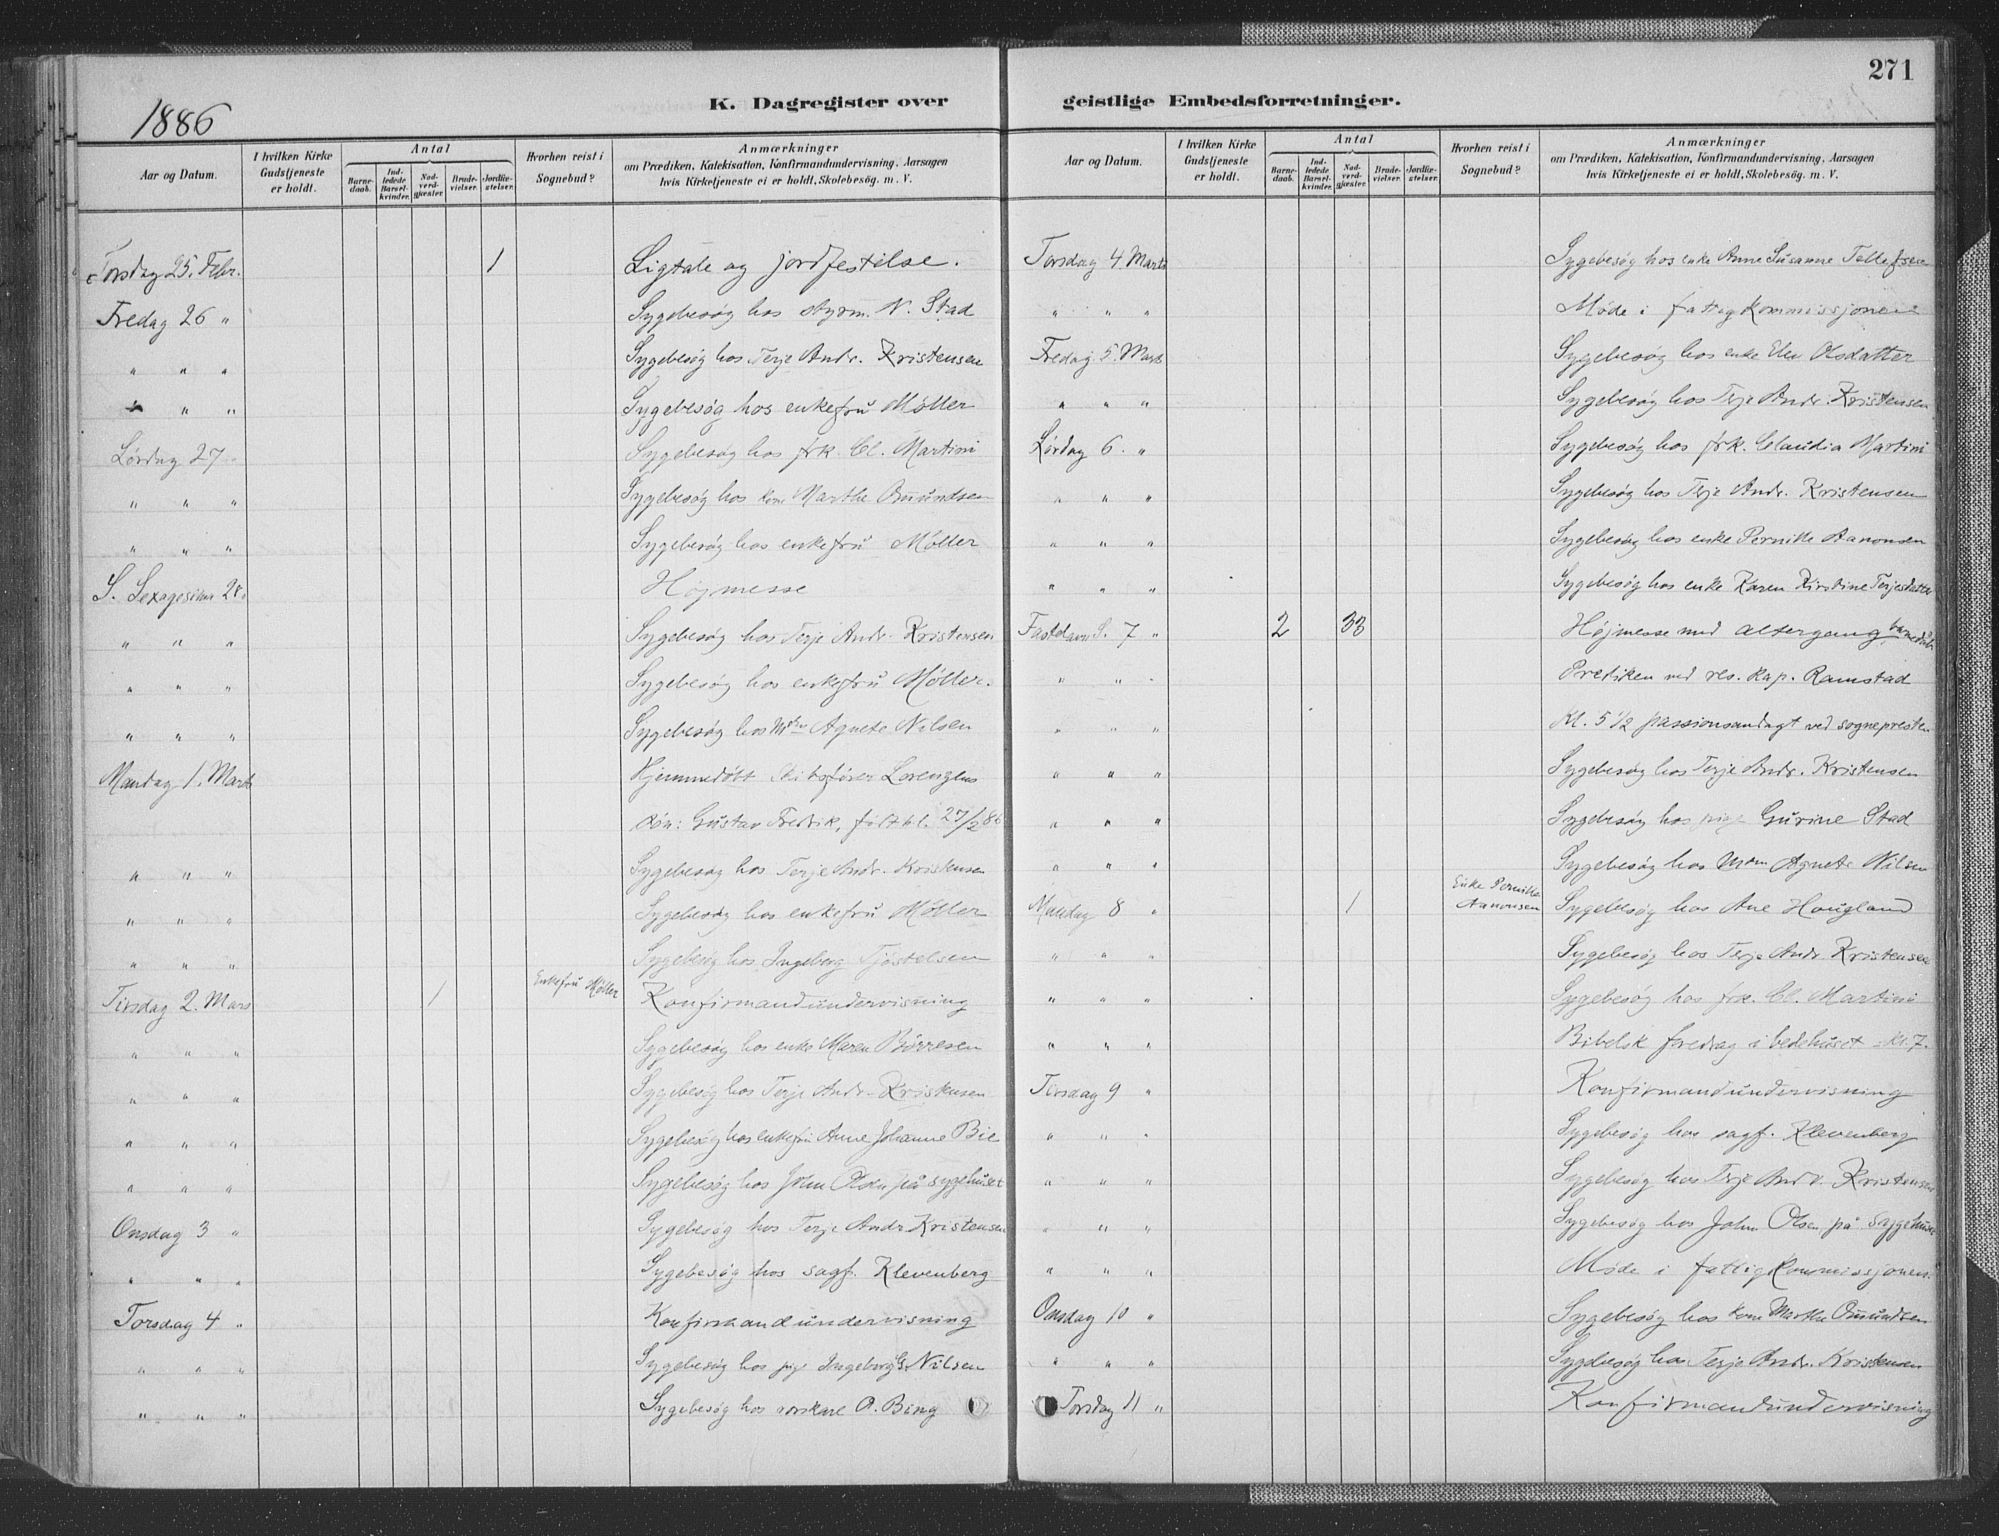 271
1886
K. Dagregister over geistlige Embedsforretninger.
Aar og Datum.
I hvilken Kirke Gudstjeneste er holdt.
Antal
Barnedaab.
Indledede Barselkvinder.
Nadverdgjæster.
Brudevielser.
Jordfæstelser.
Hvorhen reist i Sognebud?
Anmærkninger
om Prædiken, Katekisation, Konfirmandundervisning, Aarsagen
hvis Kirketjeneste ei er holdt, Skolebesøg. m. V.
Torsdag 25. Febr. 1 Ligtale og jordfestelse.
Fredag 26 " Sygebesøg hos styrm. N. Stad
" " " Sygebesøg hos Terje Andr. Kristensen
" " " Sygebesøg hos enkefru Møller
Lørdag 27 Sygebesøg hos frk. Cl. Martini
" " " Sygebesøg hos kone Marthe Omundsen
" " " Sygebesøg hos enkefru Møller
S. Sexagesima 28. Højmesse
" " " Sygebesøg hos Terje Andr. Kristensen
" " " Sygebesøg hos enkefru Møller.
" " " Sygebesøg hos Agnete Nilsen
Mandag 1. Marts Hjemmedøbt Skibsfører Lorenzens
søn: Gustav Fredrik, født 27/2 86
" " " Sygebesøg hos Terje Andr. Kristensen
" " " Sygebesøg hos enkefru Møller
" " " Sygebesøg hos Ingeborg Tjøstelsen
Tirsdag 2. Mars 1 Enkefru Møller Konfirmandundervisning
" " " Sygebesøg hos enke Maren Børresen
" " " Sygebesøg hos Terje Andr. Kristensen
" " " Sygebesøg hos enkefru Anne Johanne Bie
" " " Sygebesøg hos John Olsen på sygehuset
Onsdag 3 " Sygebesøg hos Terje Andr. Kristensen
" " " Sygebesøg hos sagf. Klevenberg
Torsdag 4 " Konfirmandundervisning
" " " Sygebesøg hos pige Ingeborg G. Nilsen
" " " Sygebesøg hos O. Bing
Aar og Datum.
I hvilken Kirke Gudstjeneste er holdt.
Antal
Barnedaab.
Indledede Barselkvinder.
Nadverdgjæster.
Brudevielser.
Jordfæstelser.
Hvorhen reist i Sognebud?
Anmærkninger
om Prædiken, Katekisation, Konfirmandundervisning, Aarsagen
hvis Kirketjeneste ei er holdt, Skolebesøg. m. V.
Torsdag 4 Marts Sygebesøg hos enke Anne Susanne Tellefsen
" " " Møde i fattigkommissjonen
Fredag 5. Marts Sygebesøg hos enke Elen Olsdatter
" " " Sygebesøg hos Terje Andr. Kristensen
Lørdag 6. " Sygebesøg hos frk. Claudia Martini
" " " Sygebesøg hos Terje Andr. Kristensen
" " " Sygebesøg hos enke Pernille Aanonsen
" " " Sygebesøg hos enke Karen Kirstine Terjesdatter
Fastelavns S. 7 " 2 33 Højmesse med altergang barnedåb
" " " Prediken ved res. kap. Ramstad
" " " Kl. 5 1/2 passionsandagt ved sognepresten
" " " Sygebesøg hos Terje Andr. Kristensen
" " " Sygebesøg hos pige Gurine Stad
" " " Sygebesøg hos Mdm Agnete Nilsen
Mandag 8 " 1 Enke Pernille Aanonsen Sygebesøg hos Ane Hougland
" " " Sygebesøg hos Terje Andr. Kristensen
" " " Sygebesøg hos frk. Cl. Martini
" " " Bibelsk foredrag i bedehuset Kl. 7.
Tirsdag 9 " Konfirmandundervisning
" " " Sygebesøg hos sagf. Klevenberg
" " " Sygebesøg hos Terje Andr. Kristensen
" " " Sygebesøg hos John Olsen på Sygehuset
" " " Møde i fattigkommissjonen.
Onsdag 10 " Sygebesøg hos kone Marthe Omundsen
" " " Sygebesøg hos Terje Andr. Kristensen
Torsdag 11 " Konfirmandundervisning